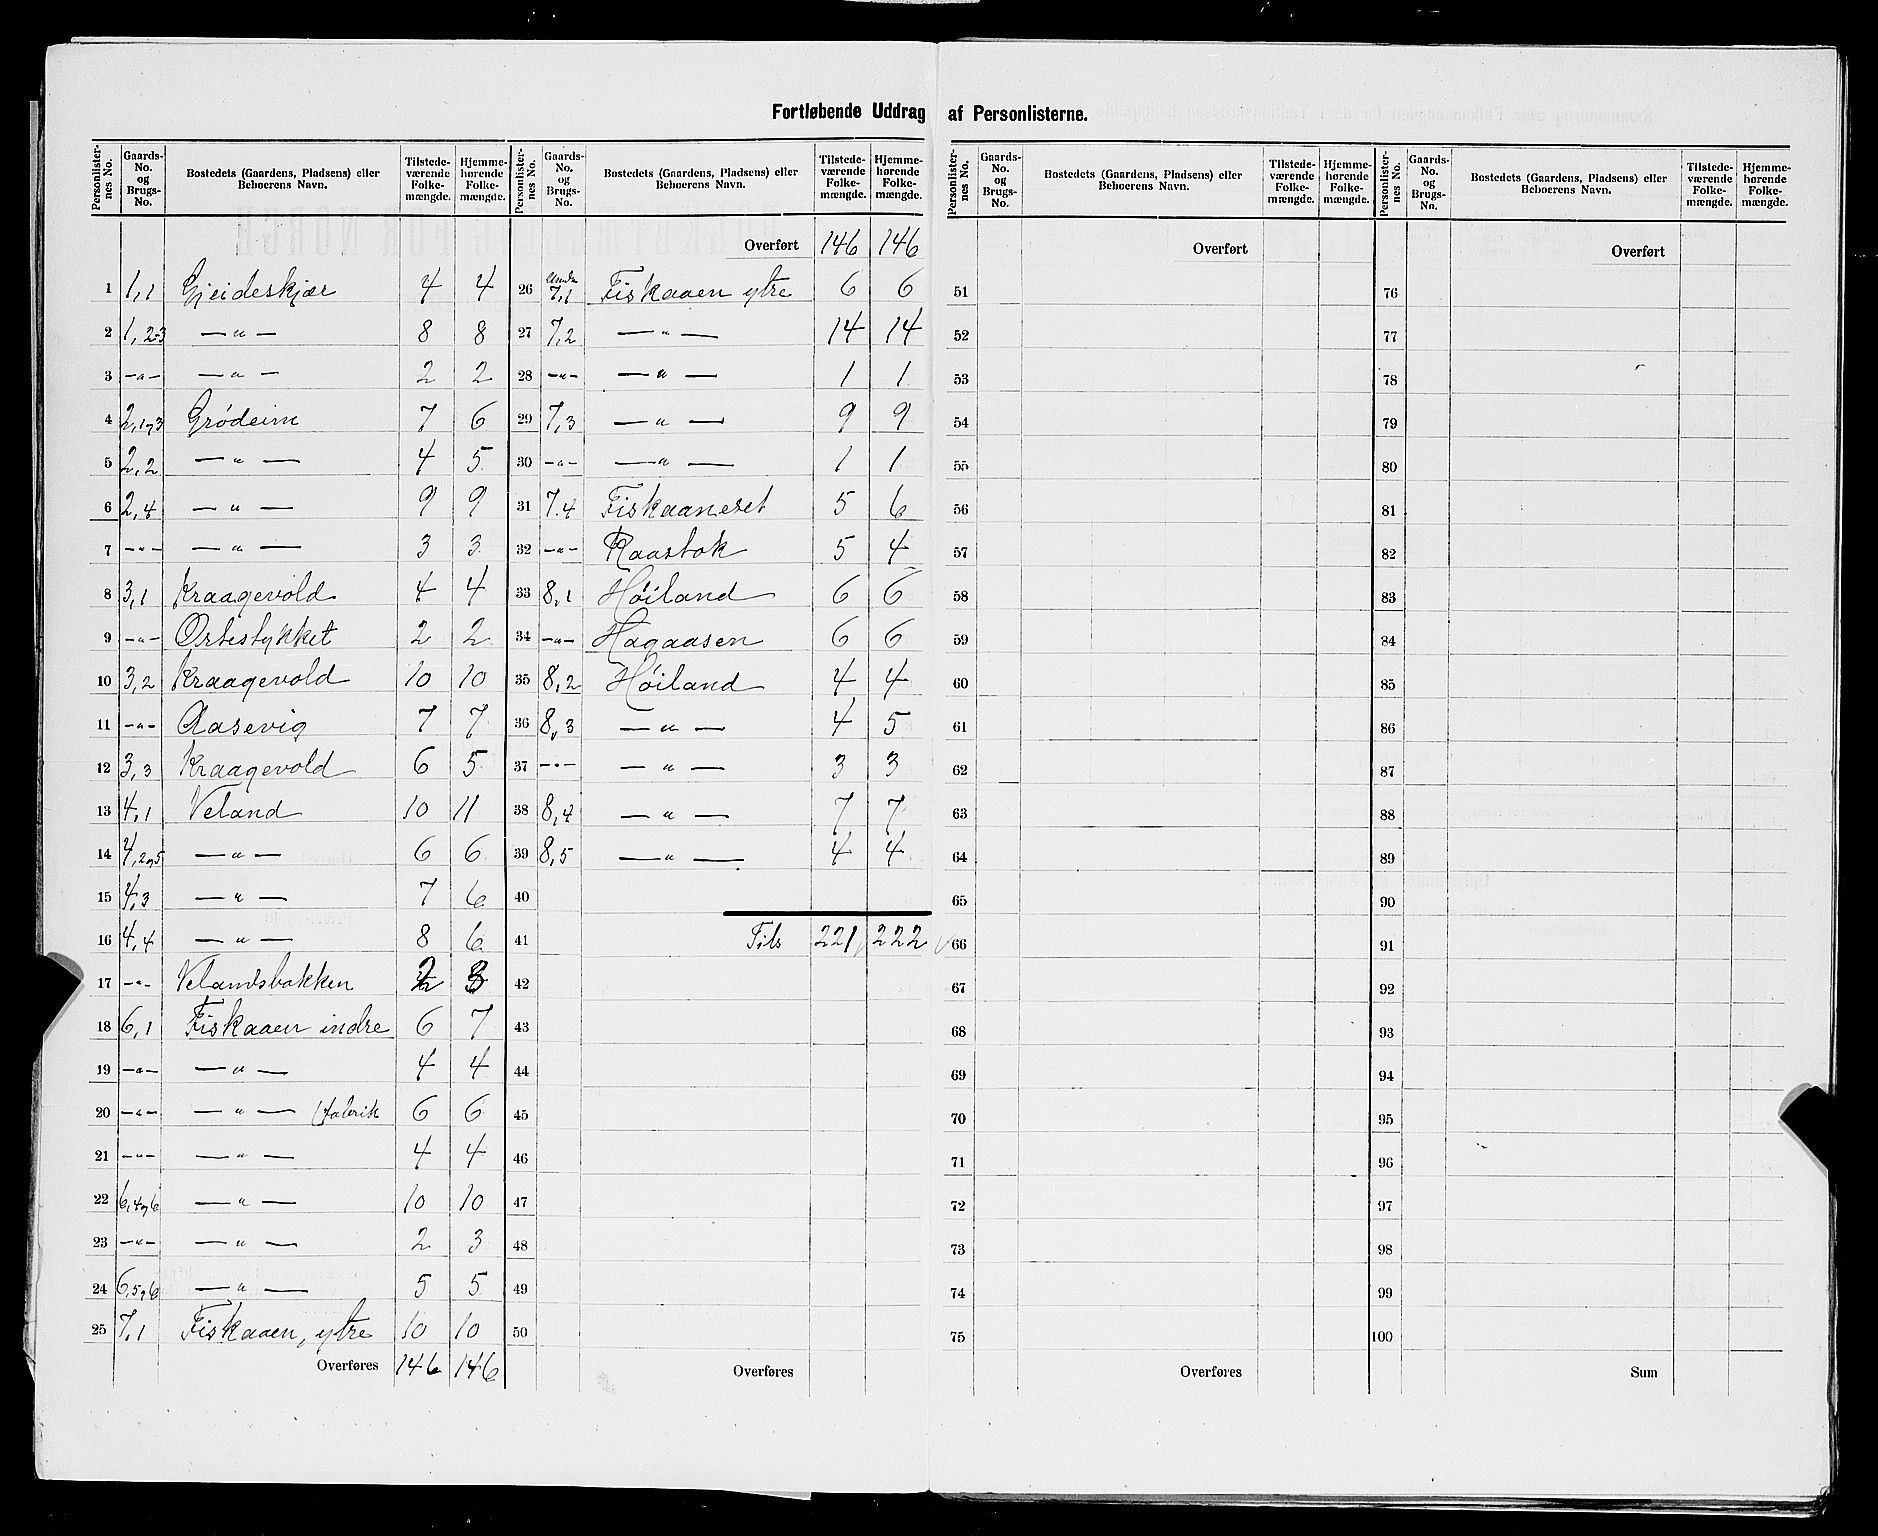 Fortløbende Uddrag af Personlisterne.
Personlister-nes No. | Gaards-No. og Brugs-No. | Bostedets (Gaardens, Pladsens) eller Beboerens Navn. | Tilstede-værende Folke-mængde. | Hjemme-hørende Folke-mængde.
1 | 1,1 | Gjeideskjær | 4 | 4
2 | 1,2-3 | —"— | 8 | 8
3 | —"— | —"— | 2 | 2
4 | 2,1og3 | Grødeim | 7 | 6
5 | 2,2 | —"— | 4 | 5
6 | 2,4 | —"— | 9 | 9
7 | —"— | —"— | 3 | 3
8 | 3,1 | Kraagevold | 4 | 4
9 | —"— | Ørtestykket | 2 | 2
10 | 3,2 | Kraagevold | 10 | 10
11 | —"— | Aasevig | 7 | 7
12 | 3,3 | Kraagevold | 6 | 5
13 | 4,1 | Veland | 10 | 11
14 | 4,2og5 | —"— | 6 | 6
15 | 4,3 | —"— | 7 | 6
16 | 4,4 | —"— | 8 | 6
17 | —"— | Velandsbakken | 2 | 3
18 | 6,1 | Fiskaaen indre | 6 | 7
19 | —"— | —"— | 4 | 4
20 | —"— | —"— (fabrik | 6 | 6
21 | —"— | —"— | 4 | 4
22 | 6,4og6 | —"— | 10 | 10
23 | —"— | —"— | 2 | 3
24 | 6,5og6 | —"— | 5 | 5
25 | 7,1 | Fiskaaen, ytre | 10 | 10
Overføres | 146 | 146
Personlister-nes No. | Gaards-No. og Brugs-No. | Bostedets (Gaardens, Pladsens) eller Beboerens Navn. | Tilstede-værende Folke-mængde. | Hjemme-hørende Folke-mængde.
Overført | 146 | 146
26 | Under 7,1 | Fiskaaen ytre | 6 | 6
27 | 7,2 | —"— | 14 | 14
28 | —"— | —"— | 1 | 1
29 | 7,3 | —"— | 9 | 9
30 | —"— | —"— | 1 | 1
31 | 7.4 | Fiskaaneset | 5 | 6
32 | —"— | Raastok | 5 | 4
33 | 8,1 | Høiland | 6 | 6
34 | —"— | Hagaasen | 6 | 6
35 | 8,2 | Høiland | 4 | 4
36 | 8,3 | —"— | 4 | 5
37 | —"— | —"— | 3 | 3
38 | 8,4 | —"— | 7 | 7
39 | 8,5 | —"— | 4 | 4
40
41 | Tils | 221, | 222
42
43
44
45
46
47
48
49
50
Overføres
Personlister-nes No. | Gaards-No. og Brugs-No. | Bostedets (Gaardens, Pladsens) eller Beboerens Navn. | Tilstede-værende Folke-mængde. | Hjemme-hørende Folke-mængde.
Overført
51
52
53
54
55
56
57
58
59
60
61
62
63
64
65
66
67
68
69
70
71
72
73
74
75
Overføres
Personlister-nes No. | Gaards-No. og Brugs-No. | Bostedets (Gaardens, Pladsens) eller Beboerens Navn. | Tilstede-værende Folke-mængde. | Hjemme-hørende Folke-mængde.
Overført
76
77
78
79
80
81
82
83
84
85
86
87
88
89
90
91
92
93
94
95
96
97
98
99
100
Sum